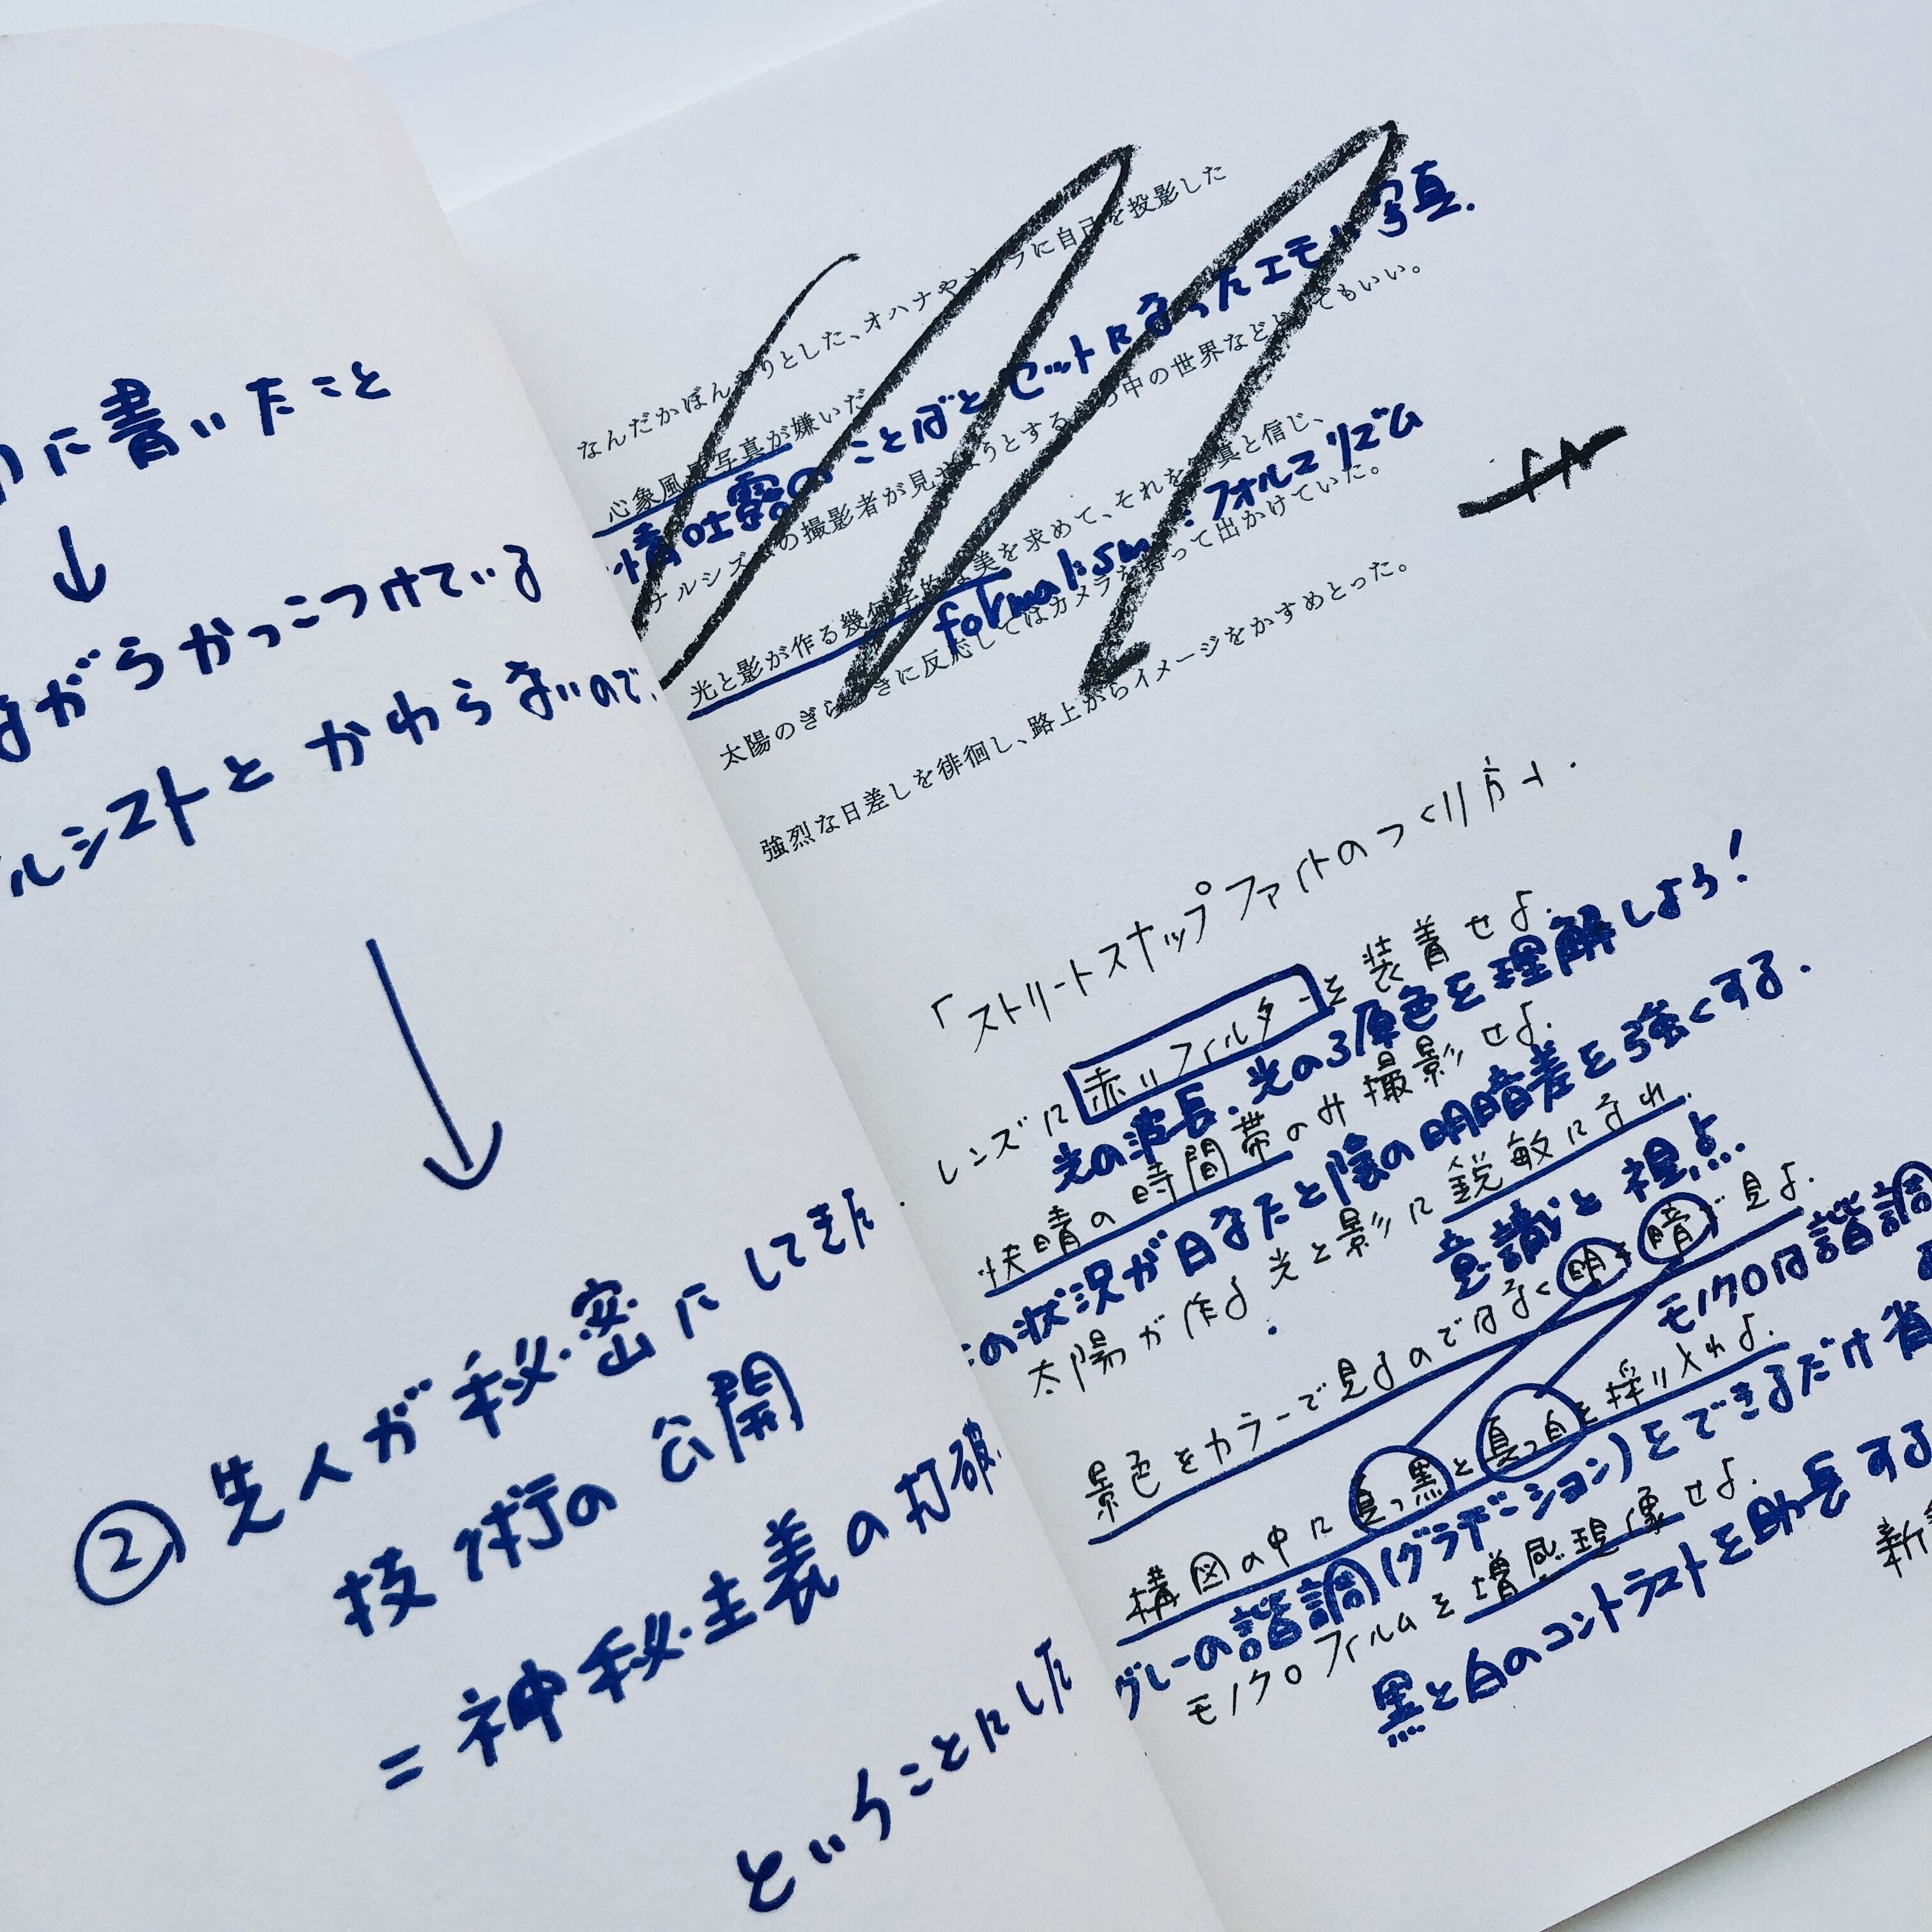 に書いたこと
↓
ながらかっこつけている
ルシストとかわらないので、
↓
② 先人が秘密にしてきた
技術の公開
= 神秘主義の打破.
ということにした
なんだかぼんやりとした、オハナやソラに自己を投影した
心象風景写真が嫌いだ
情吐露のことばとセットになったエモい写真.
ナルシズムの撮影者が見せようとする心の中の世界などどうでもいい。
光と影が作る幾何学的な美を求めて、それを写真と信じ、
formalism:フォルマリズム
太陽のぎらつきに反応してはカメラを持って出かけていた。
強烈な日差しを徘徊し、路上からイメージをかすめとった。
「ストリートスナップファイトのつくり方」.
レンズに赤いフィルターを装着せよ.
光の波長.光の3原色を理解しよう!
快晴の時間帯のみ撮影せよ.
の状況が日なたと陰の明暗差を強くする.
太陽が作る光と影に鋭敏になれ.
意識と視点.
景色をカラーで見るのではなく明と暗で見よ.
モノクロは諧調
構図の中に真っ黒と真っ白を採り入れよ.
グレーの諧調(グラデーション)をできるだけ省
モノクロフィルムを増感現像せよ.
黒と白のコントラストを助長する
新